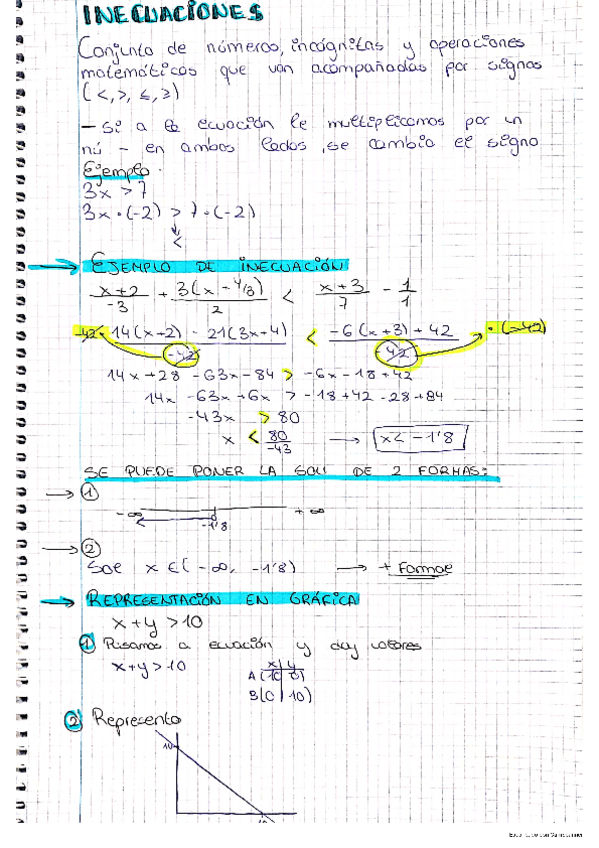 INECUACIONES
Conjunto de números, incógnitas y operaciones
matemáticas que van acompañadas por signos
(<, >, ≤, ≥)
- Si a la ecuación le multiplicamos por un
nú - en ambos lados, se cambia el signo
Ejemplo.
3x > 7
3x · (-2) > 7 · (-2)
↓
<
→ EJEMPLO DE INECUACIÓN
x+2/-3 + 3(x - 4/3)/2 < x+3/7 - 1/1
-42 · 14(x+2) - 21(3x+4)/-42 < -6(x+3) + 42/-42 · (-42)
14x + 28 - 63x - 84 > -6x - 18 + 42
14x - 63x + 6x > -18 + 42 - 28 + 84
-43x > 80
x < 80/-43 → x < -1'8
SE PUEDE PONER LA SOLU DE 2 FORMAS:
→ ①
-∞ -1'8 +∞
→ ②
Sol x ∈ (-∞, -1'8) → + Formal
→ REPRESENTACIÓN EN GRÁFICA
x + y > 10
① Pasamos a ecuación y doy valores
x+y > 10
x | y
A (10 | 0)
B (0 | 10)
② Represento
10
10